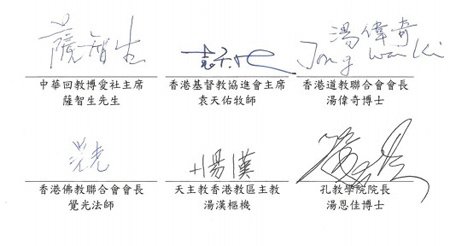 薩智生
袁天佑
湯偉奇
Tong Wai Ki
中華回教博愛社主席
香港基督教協進會主席
香港道教聯合會會長
薩智生先生
袁天佑牧師
湯偉奇博士
覺光
湯漢
香港佛教聯合會會長
天主教香港教區主教
孔教學院院長
覺光法師
湯漢樞機
湯恩佳博士